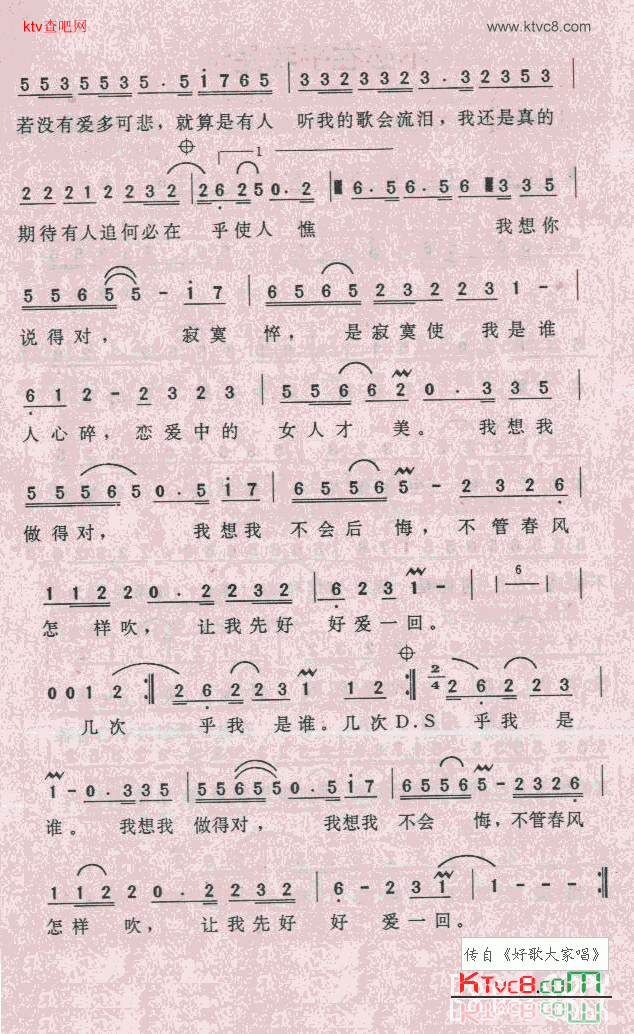 ktv查吧网
www.ktvc8.com
5 5 3 5 5 3 5 . 5 i 7 6 5 | 3 3 2 3 3 2 3 . 3 2 3 5 3 |
若没有爱多可悲，就算是有人 听我的歌会流泪，我还是真的
1
2 2 2 1 2 2 3 2 | 2 6 2 5 0 . 2 6 . 5 6 . 5 6 3 3 5 |
期待有人追何必在 乎使人 憔 我想你
5 5 6 5 5 - i 7 | 6 5 6 5 2 3 2 2 3 1 - |
说得对， 寂寞 悴， 是寂寞使 我是谁
6 1 2 - 2 3 2 3 | 5 5 6 6 2 0 . 3 3 5 |
人心碎，恋爱中的 女人才 美。 我想我
5 5 5 6 5 0 . 5 i 7 | 6 5 5 6 5 - 2 3 2 6 |
做得对， 我想我 不会后 悔，不管春风
1 1 2 2 0 . 2 2 3 2 | 6 2 3 1 - | 6 |
怎 样吹， 让我先好 好爱一回。
0 0 1 2 :‖ 2 6 2 2 3 1 1 2 :‖ 2/4 2 6 2 2 3 |
几次 乎我 是谁。几次D.S 乎我 是
1 - 0 . 3 3 5 | 5 5 6 5 5 0 . 5 i 7 | 6 5 5 6 5 - 2 3 2 6 |
谁。 我想我 做得对， 我想我 不会 悔，不管春风
1 1 2 2 0 . 2 2 3 2 | 6 - 2 3 1 | 1 - - - :‖
怎样 吹， 让我先好 好 爱一回。
传自《好歌大家唱》
KTvc8.com